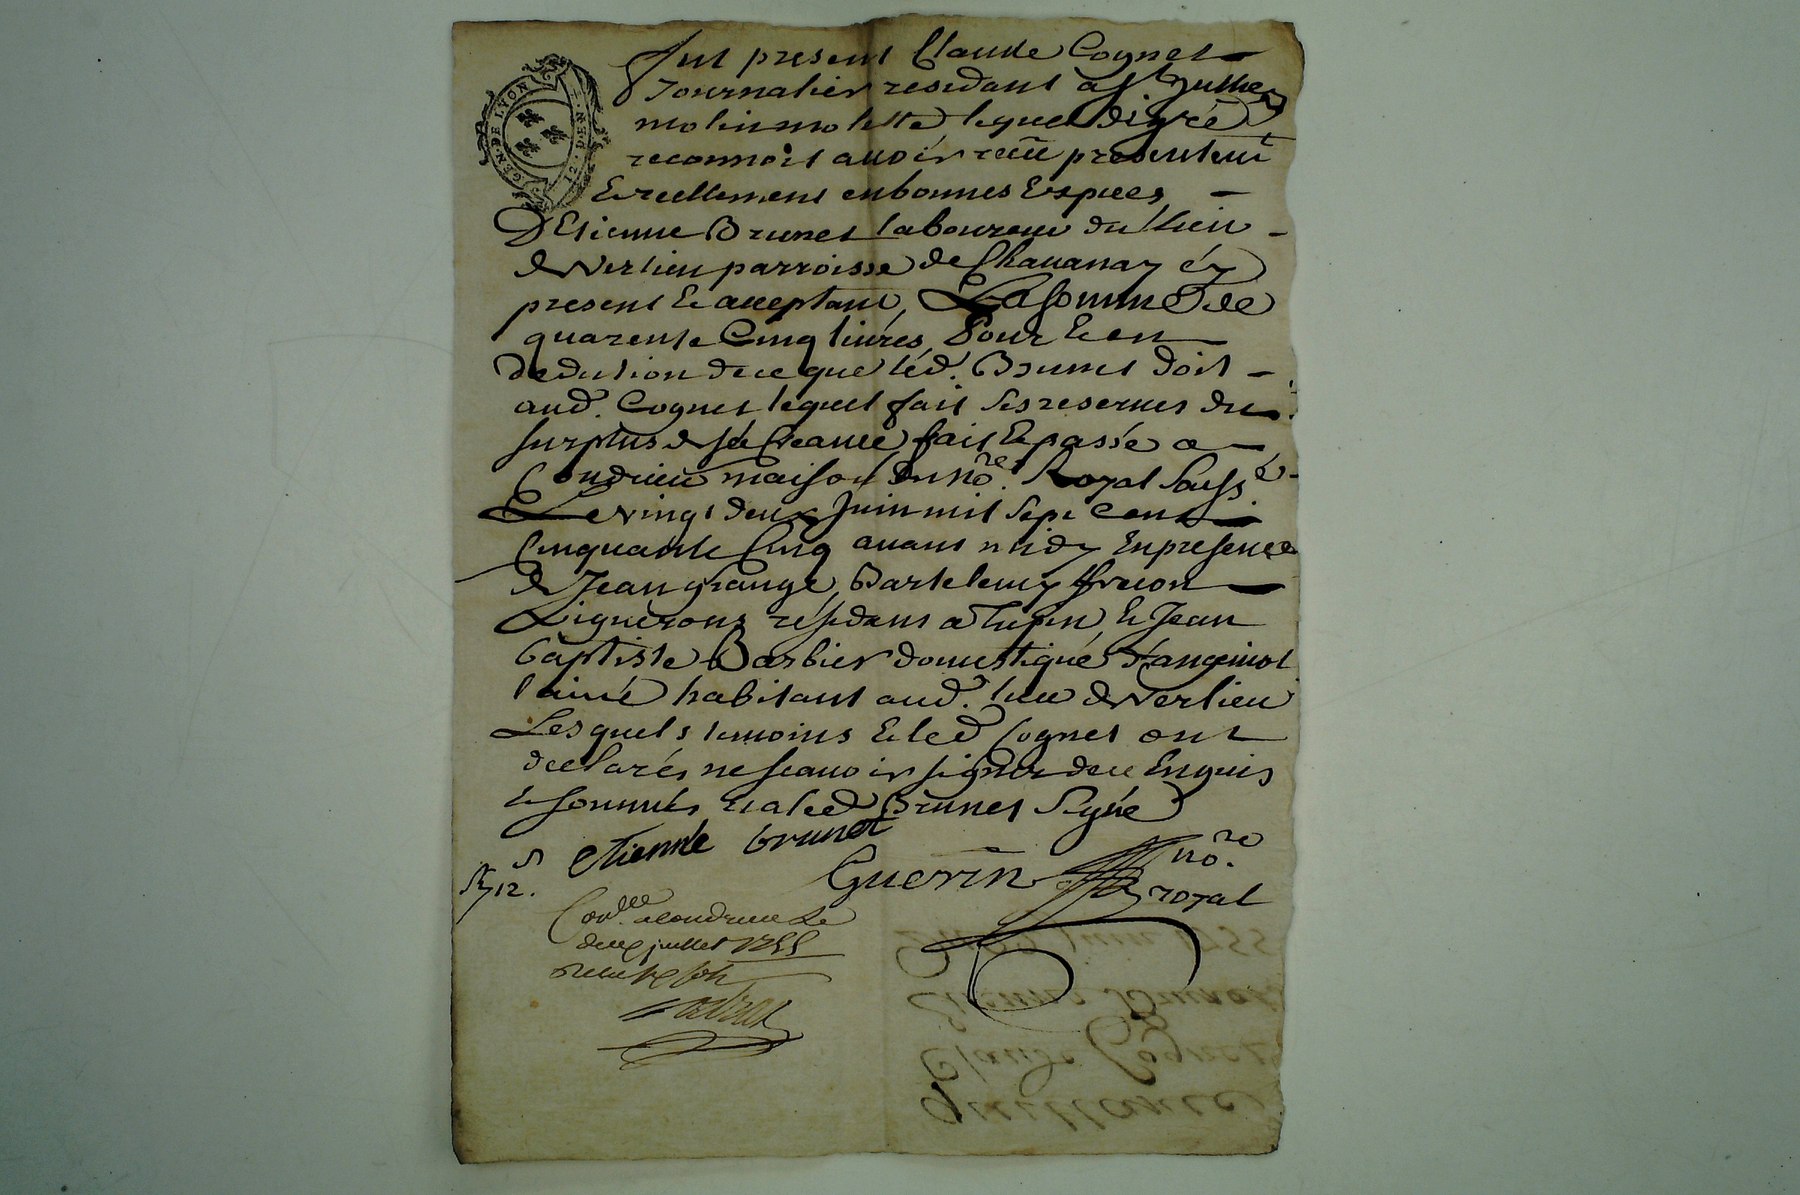 GEN. DE LYON
12. DEN. +
Fut present Claude Cognet
Journalier residant a St Jullien
molin molette lequel de gré
reconnoit avoir recû presentemt
Et reellement en bonnes Espèces
D'Etienne Brunet laboureur du lieu
de Verlieu parroisse de Chavanay icy
present Et acceptant, La somme de
quarente Cinq livres, Pour Et en
deduction de ce que led. Brunet doit
aud. Cognet lequel fait ses reserves du
surplus de sa Creance, fait Et passée a
Condrieu maison du nore. Royal Soussé.
Le vingt deux Juin mil Sept Cent
Cinquante Cinq avant midy En presence
de Jean grange, Bartelemy
Vignerons résidans a Tupin, Et Jean
Baptiste Barbier domestique
l'ainé habitant aud. lieu de Verlieu
Lesquels temoins Et led Cognet ont
declarés ne scavoir signer de ce Enquis
Et sommés Et a led Brunet Signé
etienne brunet
Guerin nore.
royal
12.
Conlle. a Condrieu Le
deux juillet 1755
Recu
22 juin 1755
Etienne Brunet
Claude Cognet
quittance